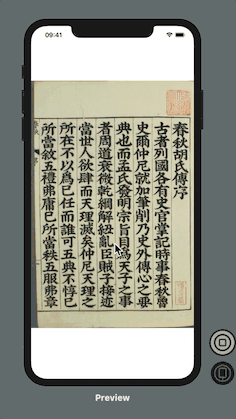 09:41
春秋胡氏傳序
古者列國各有史官掌記時事春秋魯
史爾仲尼就加筆削乃史外傳心之要
典也而孟氏發明宗旨目爲天子之事
者周道衰微乾綱解紐亂臣賊子接迹
當世人欲肆而天理滅矣仲尼天理之
所在不以爲已任而誰可五典不惇已
所當敘五禮弗庸已所當秩五服弗章
Preview